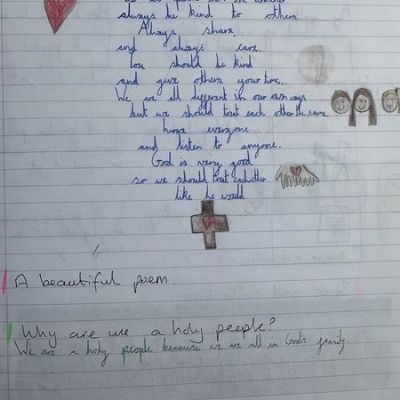 always be kind to others
Always share
and always care.
You should be kind
and give others your time.
We are all different in our own ways
but we should treat each other the same.
everyone
and listen to anyone.
God is very good
so we should treat eachother
like he would
A beautiful poem.
Why are we a holy people?
We are a holy people because we are all in God's family